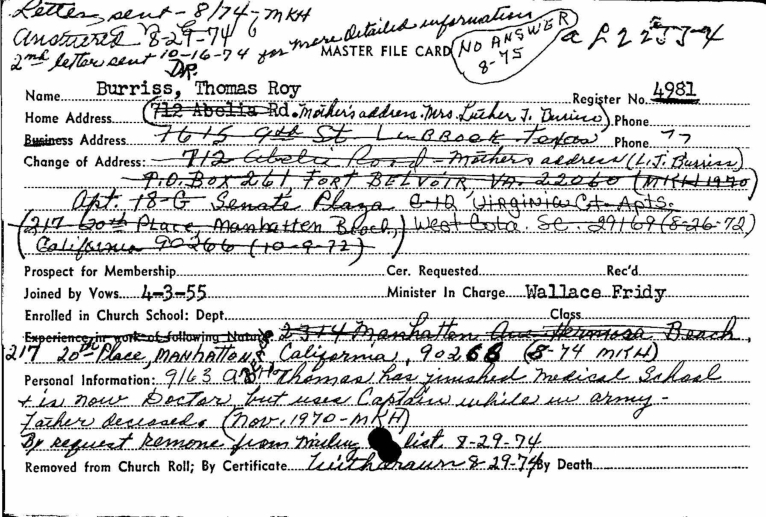 Letter sent - 8/74 - MKH
Answered 8-29-74
2nd letter sent 10-16-74 for more detailed information
MASTER FILE CARD
NO ANSWER
8-75
DR.
Name Burriss, Thomas Roy Register No. 4981
Home Address (712 Abelia Rd. Mother's address. Mrs. Luther J. Burriss) Phone
Business Address 7615 9th St LuBBock, Texas Phone 77
Change of Address: 712 Abelia Road - Mother's address (L.J. Burriss)
P.O. BOX 261, FORT BELVOIR, VA. 22060 (MKH 1970)
Apt. 18-G Senate Plaza G-12 VIRGINIA Ct. Apts.
(217 20th Place, Manhatten Beach, West Cola. SC. 29169 (8-26-72)
California 90266 (10-9-72)
Prospect for Membership Cer. Requested Rec'd
Joined by Vows 4-3-55 Minister In Charge Wallace Fridy
Enrolled in Church School: Dept. Class
Experience in work of following Nature 2314 Manhatton Ave Hermosa Beach,
217 20th Place, MANHATTON, California, 90266 (8-74 MKH)
Personal Information: 9/63 Thomas has finished Medical School
+ is now Doctor, but uses Captain while in army -
Father deceased. (Nov. 1970 - MKH)
By request remove from mailing list. 8-29-74
Removed from Church Roll; By Certificate Withdrawn 8-29-74 By Death